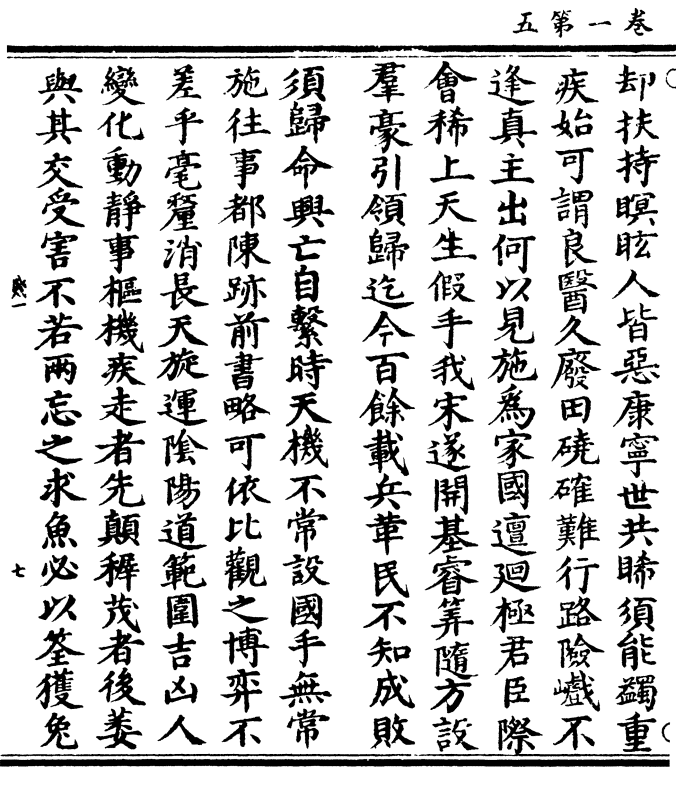 卷第一五
却扶持瞑眩人皆惡康寧世共睎須能蠲重
疾始可謂良醫久廢田磽確難行路險巇不
逢真主出何以見施為家國邅廻極君臣際
會稀上天生假手我宋遂開基睿筭隨方設
羣豪引領歸迄今百餘載兵革民不知成敗
須歸命興亡自繫時天機不常設國手無常
施往事都陳跡前書略可依比觀之博弈不
差乎毫釐消長天旋運陰陽道範圍吉凶人
變化動靜事樞機疾走者先顛穉茂者後萎
與其交受害不若兩忘之求魚必以筌獲兔
七